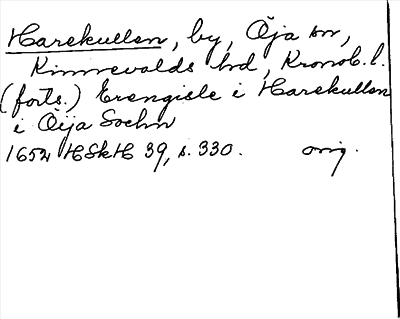 Harekullen, by, Öja sn,
Kinnevalds hd, Kronob. l.
(forts.) Erengisle i Harekullen
i Öija Sochn
1652 HSkH 39, s. 330. orig.